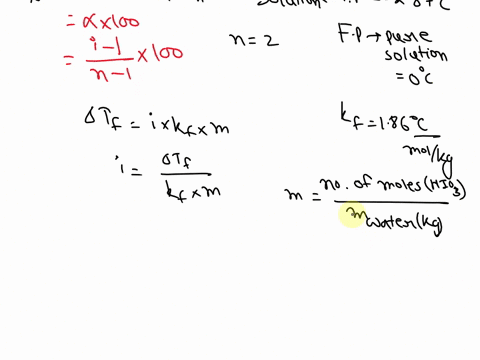 = α×100
= i-1/n-1 ×100
n=2
F.P → pure
solution
= 0°C
ΔTf = i×kf×m
i = ΔTf / kf×m
kf = 1.86°C
mol/kg
m = no. of moles (HIO3)
mwater(kg)